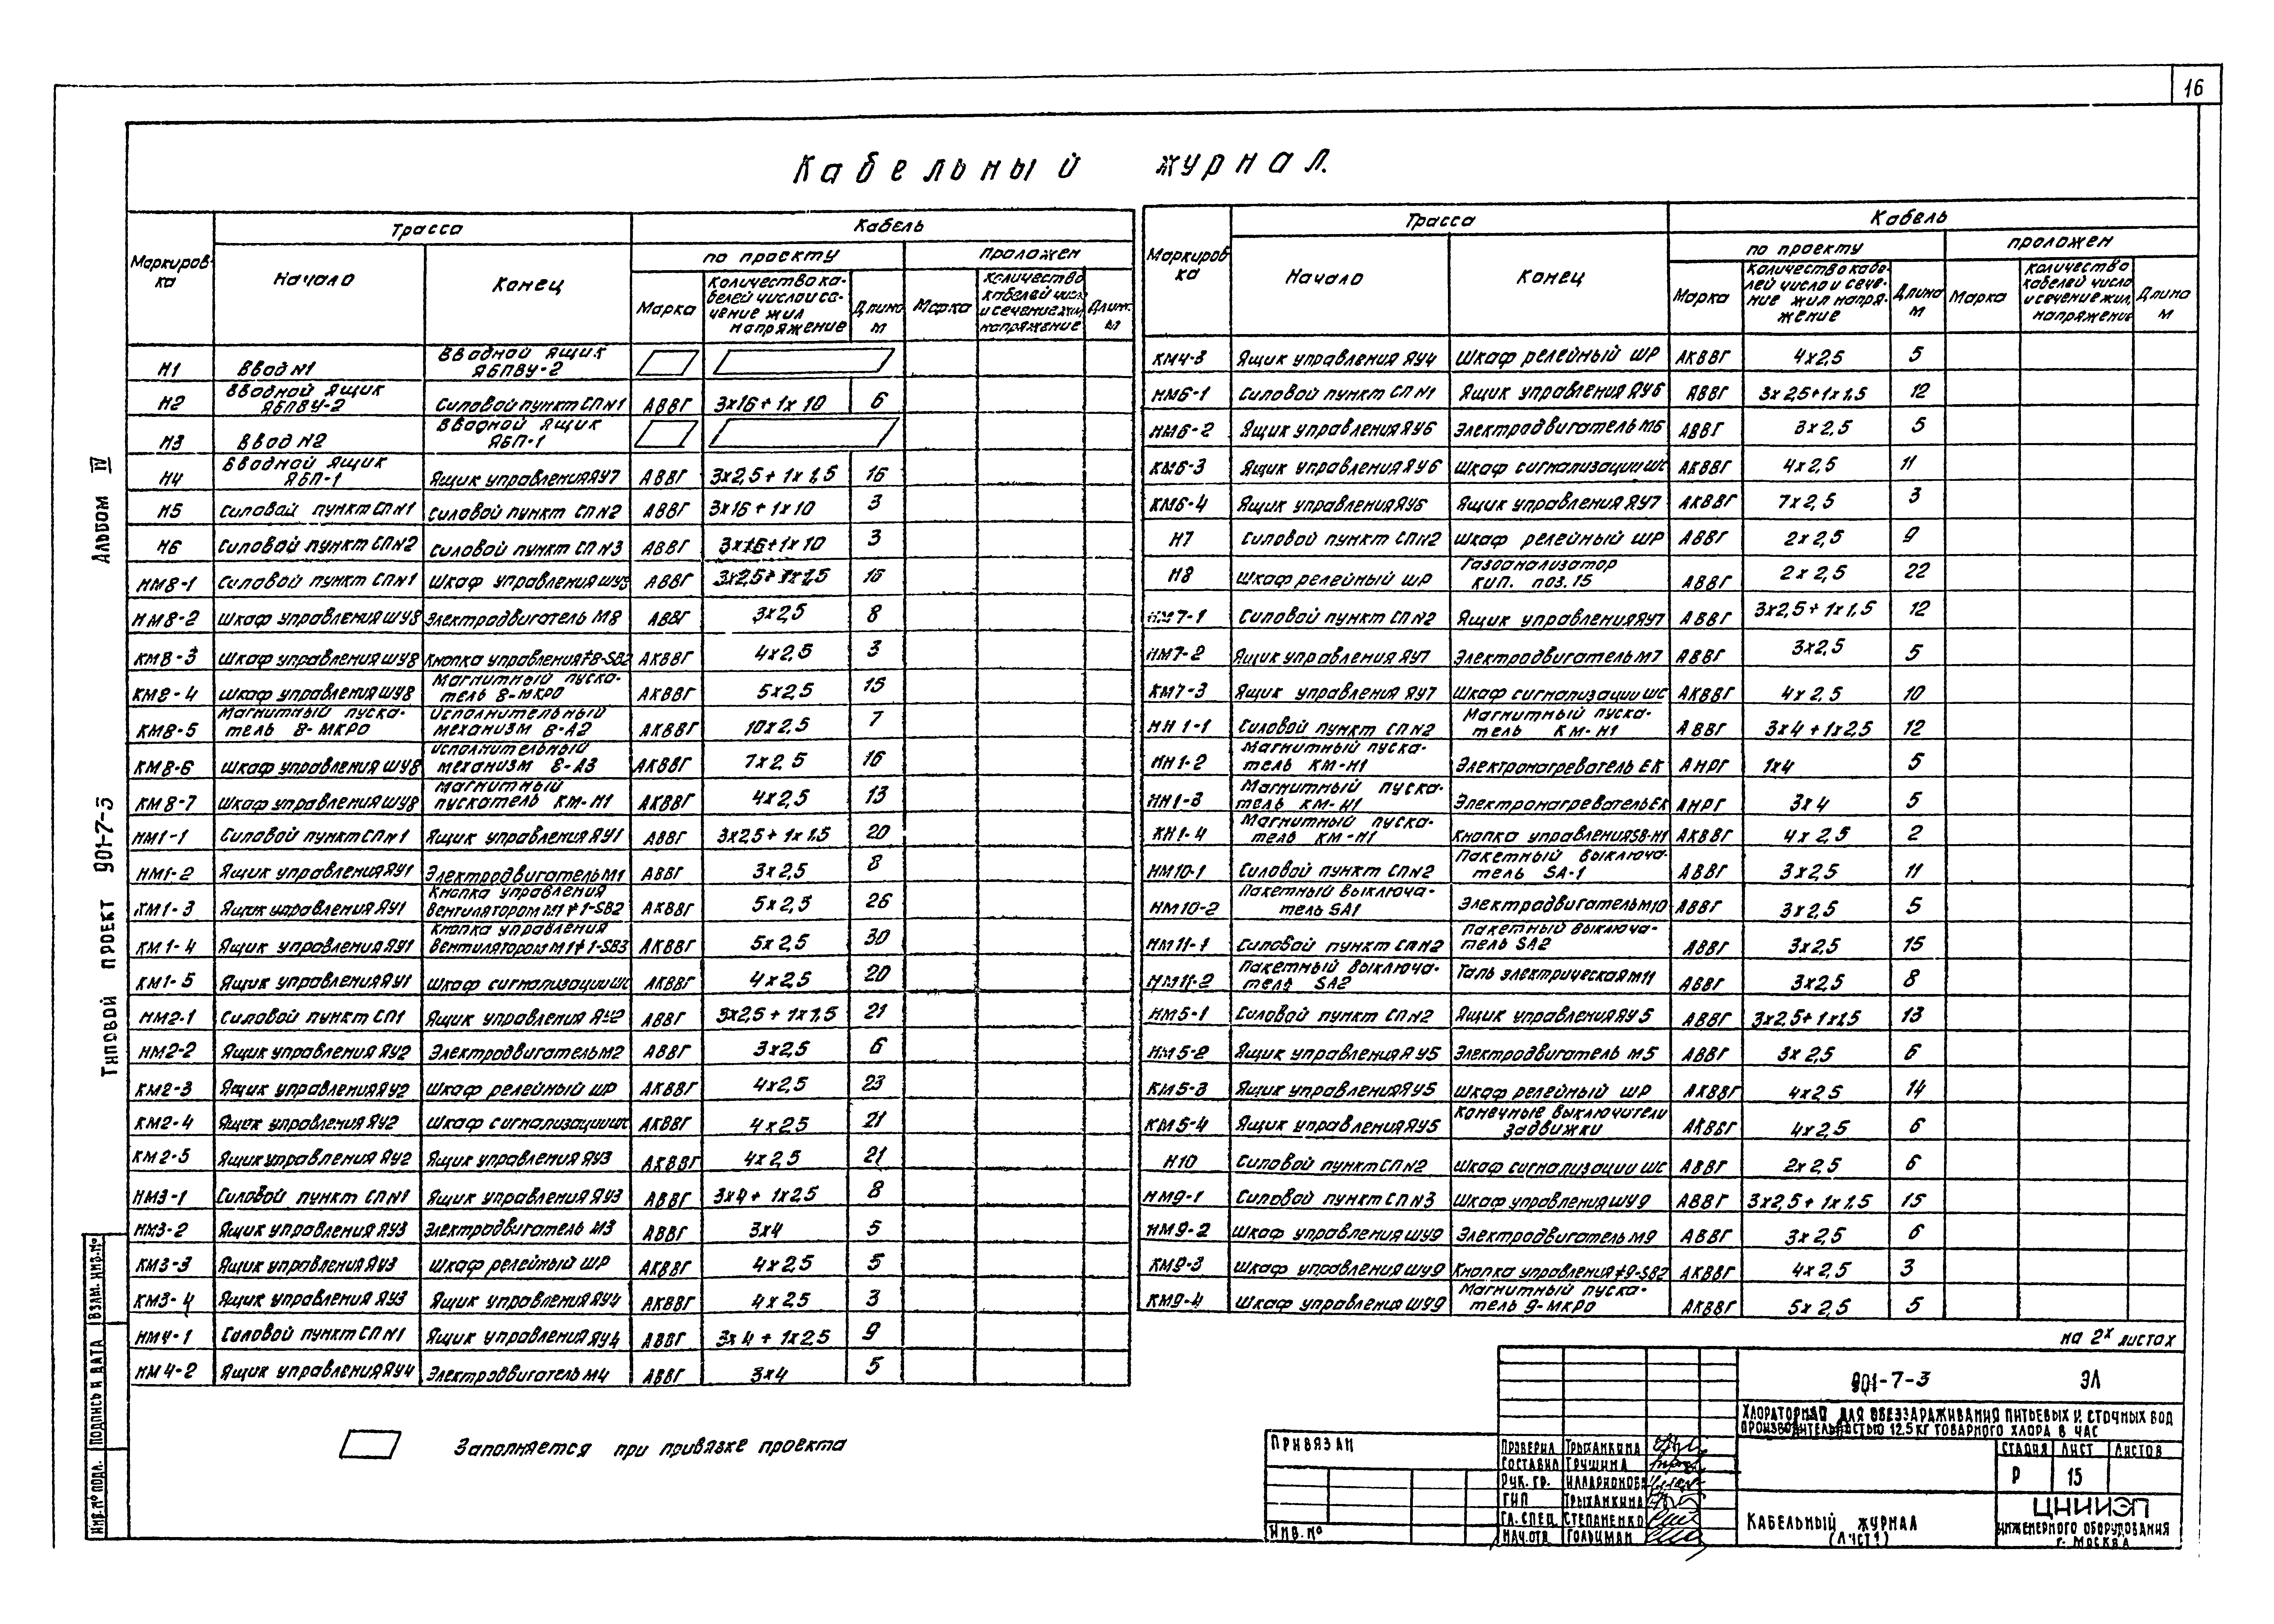 16
Кабельный журнал.
Маркировка
Трасса
Кабель
Начало
Конец
по проекту
проложен
Марка
Количество кабелей число и сечение жил напряжение
Длина м
Марка
Количество кабелей число и сечение жил, напряжение
Длин. м
Н1 Ввод №1 Вводной ящик ЯБПВУ-2
Н2 Вводной ящик ЯБПВУ-2 Силовой пункт СП №1 АВВГ 3х16 + 1х10 6
Н3 Ввод №2 Вводной ящик ЯБП-1
Н4 Вводной ящик ЯБП-1 Ящик управления ЯУ7 АВВГ 3х2,5 + 1х1,5 16
Н5 Силовой пункт СП №1 Силовой пункт СП №2 АВВГ 3х16 + 1х10 3
Н6 Силовой пункт СП №2 Силовой пункт СП №3 АВВГ 3х16 + 1х10 3
НМ8-1 Силовой пункт СП №1 Шкаф управления ШУ8 АВВГ 3х2,5 + 1х1,5 16
НМ8-2 Шкаф управления ШУ8 Электродвигатель М8 АВВГ 3х2,5 8
КМ8-3 Шкаф управления ШУ8 Кнопка управления 78-SB2 АКВВГ 4х2,5 3
КМ8-4 Шкаф управления ШУ8 Магнитный пускатель 8-МКРО АКВВГ 5х2,5 15
КМ8-5 Магнитный пускатель 8-МКРО Исполнительный механизм 8-А2 АКВВГ 10х2,5 7
КМ8-6 Шкаф управления ШУ8 Исполнительный механизм 8-А3 АКВВГ 7х2 5 16
КМ8-7 Шкаф управления ШУ8 Магнитный пускатель КМ-Н1 АКВВГ 4х2,5 13
НМ1-1 Силовой пункт СП №1 Ящик управления ЯУ1 АВВГ 3х2,5 + 1х1,5 20
НМ1-2 Ящик управления ЯУ1 Электродвигатель М1 АВВГ 3х2,5 8
КМ1-3 Ящик управления ЯУ1 Кнопка управления вентилятором М1 71-SB2 АКВВГ 5х2,5 26
КМ1-4 Ящик управления ЯУ1 Кнопка управления вентилятором М1 71-SB3 АКВВГ 5х2,5 30
КМ1-5 Ящик управления ЯУ1 Шкаф сигнализации ШС АКВВГ 4х2,5 20
НМ2-1 Силовой пункт СП1 Ящик управления ЯУ2 АВВГ 3х2,5 + 1х1,5 21
НМ2-2 Ящик управления ЯУ2 Электродвигатель М2 АВВГ 3х2,5 6
КМ2-3 Ящик управления ЯУ2 Шкаф релейный ШР АКВВГ 4х2,5 23
КМ2-4 Ящик управления ЯУ2 Шкаф сигнализации ШС АКВВГ 4х2,5 21
КМ2-5 Ящик управления ЯУ2 Ящик управления ЯУ3 АКВВГ 4х2,5 21
НМ3-1 Силовой пункт СП №1 Ящик управления ЯУ3 АВВГ 3х4 + 1х2,5 8
НМ3-2 Ящик управления ЯУ3 Электродвигатель М3 АВВГ 3х4 5
КМ3-3 Ящик управления ЯУ3 Шкаф релейный ШР АКВВГ 4х2,5 5
КМ3-4 Ящик управления ЯУ3 Ящик управления ЯУ4 АКВВГ 4х2,5 3
НМ4-1 Силовой пункт СП №1 Ящик управления ЯУ4 АВВГ 3х4 + 1х2,5 9
НМ4-2 Ящик управления ЯУ4 Электродвигатель М4 АВВГ 3х4 5
Маркировка
Трасса
Кабель
Начало
Конец
по проекту
проложен
Марка
Количество кабелей число и сечение жил напряжение
Длина м
Марка
Количество кабелей число и сечение жил, напряжение
Длина м
КМ4-3 Ящик управления ЯУ4 Шкаф релейный ШР АКВВГ 4х2,5 5
НМ6-1 Силовой пункт СП №1 Ящик управления ЯУ6 АВВГ 3х2,5+1х1,5 12
НМ6-2 Ящик управления ЯУ6 Электродвигатель М6 АВВГ 3х2,5 5
КМ6-3 Ящик управления ЯУ6 Шкаф сигнализации ШС АКВВГ 4х2,5 11
КМ6-4 Ящик управления ЯУ6 Ящик управления ЯУ7 АКВВГ 7х2,5 3
Н7 Силовой пункт СП №2 Шкаф релейный ШР АВВГ 2х2,5 9
Н8 Шкаф релейный ШР Газоанализатор КИП. поз.15 АВВГ 2х2,5 22
НМ7-1 Силовой пункт СП №2 Ящик управления ЯУ7 АВВГ 3х2,5 + 1х1,5 12
НМ7-2 Ящик управления ЯУ7 Электродвигатель М7 АВВГ 3х2,5 5
КМ7-3 Ящик управления ЯУ7 Шкаф сигнализации ШС АКВВГ 4х2,5 10
НН1-1 Силовой пункт СП №2 Магнитный пускатель КМ-Н1 АВВГ 3х4 + 1х2,5 12
НН1-2 Магнитный пускатель КМ-Н1 Электронагреватель ЕК АНРГ 1х4 5
НН1-3 Магнитный пускатель КМ-Н1 Электронагреватель ЕК АНРГ 3х4 5
КН1-4 Магнитный пускатель КМ-Н1 Кнопка управления SB-Н1 АКВВГ 4х2,5 2
НМ10-1 Силовой пункт СП №2 Пакетный выключатель SA-1 АВВГ 3х2,5 11
НМ10-2 Пакетный выключатель SA1 Электродвигатель М10 АВВГ 3х2,5 5
НМ11-1 Силовой пункт СП №2 Пакетный выключатель SA2 АВВГ 3х2,5 15
НМ11-2 Пакетный выключатель SA2 Таль электрическая М11 АВВГ 3х2,5 8
НМ5-1 Силовой пункт СП №2 Ящик управления ЯУ5 АВВГ 3х2,5+1х1,5 13
НМ5-2 Ящик управления ЯУ5 Электродвигатель М5 АВВГ 3х2,5 6
КМ5-3 Ящик управления ЯУ5 Шкаф релейный ШР АКВВГ 4х2,5 14
КМ5-4 Ящик управления ЯУ5 Конечные выключители задвижки АКВВГ 4х2,5 6
Н10 Силовой пункт СП №2 Шкаф сигнализации ШС АВВГ 2х2,5 6
НМ9-1 Силовой пункт СП №3 Шкаф управления ШУ9 АВВГ 3х2,5 + 1х1,5 15
НМ9-2 Шкаф управления ШУ9 Электродвигатель М9 АВВГ 3х2,5 6
КМ9-3 Шкаф управления ШУ9 Кнопка управления 79-SB2 АКВВГ 4х2,5 3
КМ9-4 Шкаф управления ШУ9 Магнитный пускатель 9-МКРО АКВВГ 5х2,5 5
на 2х листах
Заполняется при привязке проекта
Типовой проект 901-7-3 Альбом IV
Инв. № подл. Подпись и дата Взам. инв. №
Привязан
Инв. №
Проверил Трыханкина
Составил Гришина
Рук. гр. Илларионова
ГИП Трыханкина
Гл. спец. Степаненко
Нач. отд. Гольцман
901-7-3 ЭЛ
Хлораторная для обеззараживания питьевых и сточных вод
производительностью 12.5 кг товарного хлора в час
Стадия Лист Листов
Р 15
Кабельный журнал
(лист 1)
ЦНИИЭП
инженерного оборудования
г. Москва